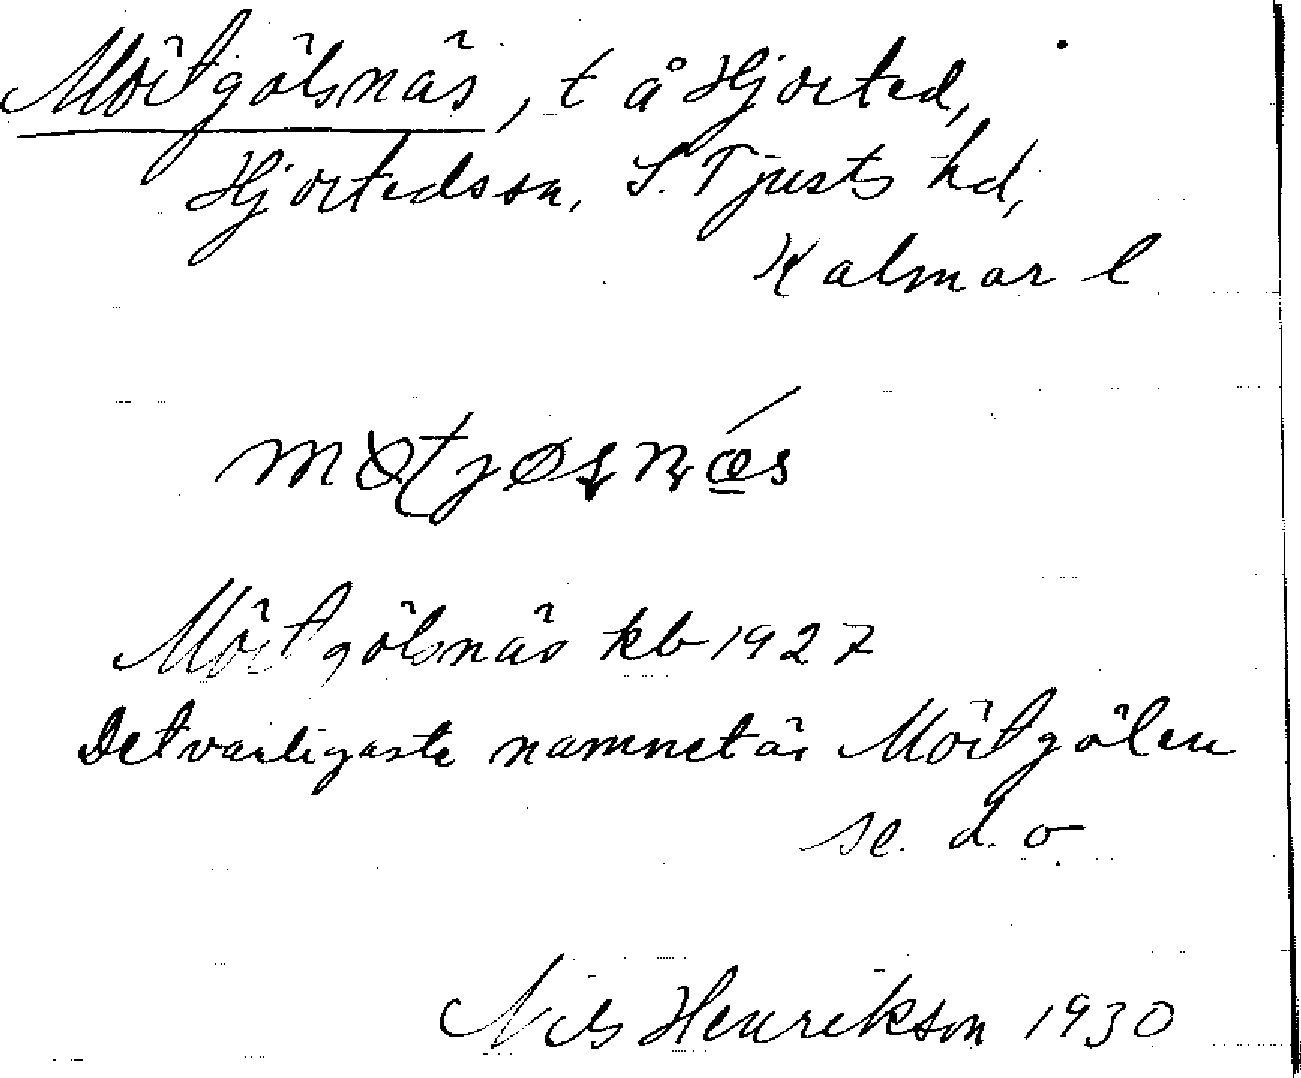 Mörtgölsnäs, t å Hjorted,
Hjorteds sn, S. Tjusts hd,
Kalmar l
Mörtgölsnäs kb 1927
Det vanligaste namnet är Mörtgölen
se. d. o
Nils Henrikson 1930